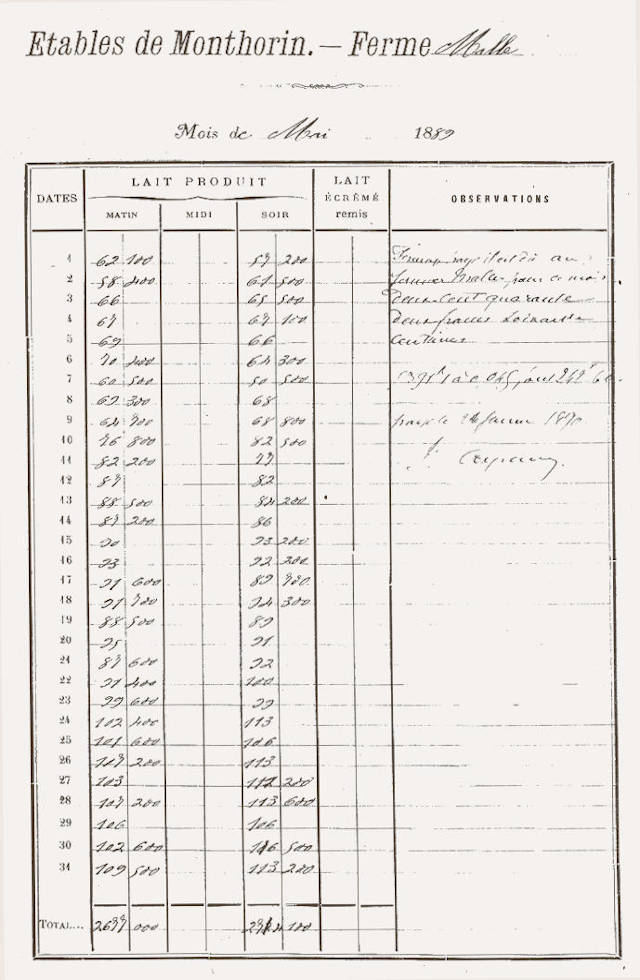 Etables de Monthorin. — Ferme Malle
Mois de Mai 1889
DATES
LAIT PRODUIT
LAIT ÉCRÉMÉ remis
OBSERVATIONS
MATIN MIDI SOIR
1 62 100 200
2 58 400 500 Fermier Malle pour ce mois
3 66 65 500 deux cent quarante
4 67 67 100 deux francs soixante
5 69 66 centimes
6 70 400 64 300
7 60 500 50 500
8 300 68
9 68 800 1890
10 76 800 82 500
11 82 200 77
12 87 82
13 88 500 84 200
14 87 200 86
15 90 93 200
16 93 92 200
17 91 600 89
18 91 94 300
19 88 500 89
20 95 91
21 87 600 92
22 91 400 100
23 99 600 99
24 102 400 113
25 101 600 106
26 107 200 113
27 103 112 200
28 107 200 113 600
29 106 106
30 102 600 116 500
31 109 500 113 200
TOTAL... 2677 000 100